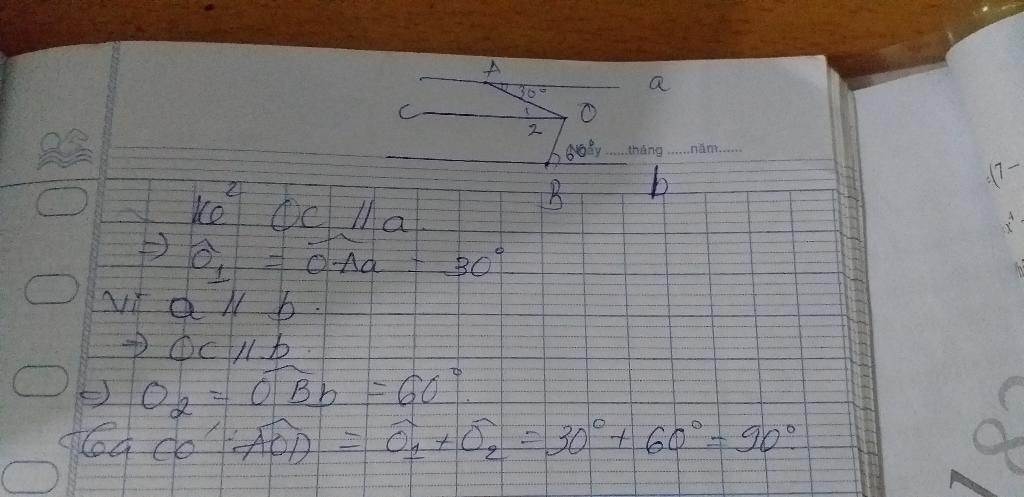 A
a
30°
C
1
O
2
60°
Ngày ......tháng ......năm......
B
b
Kẻ OC // a.
=> Ô1 = OAa = 30°
Vì a // b.
=> OC // b.
=> O2 = OBb = 60°.
Ta có: AOB = Ô1 + Ô2 = 30° + 60° = 90°.
=(7-